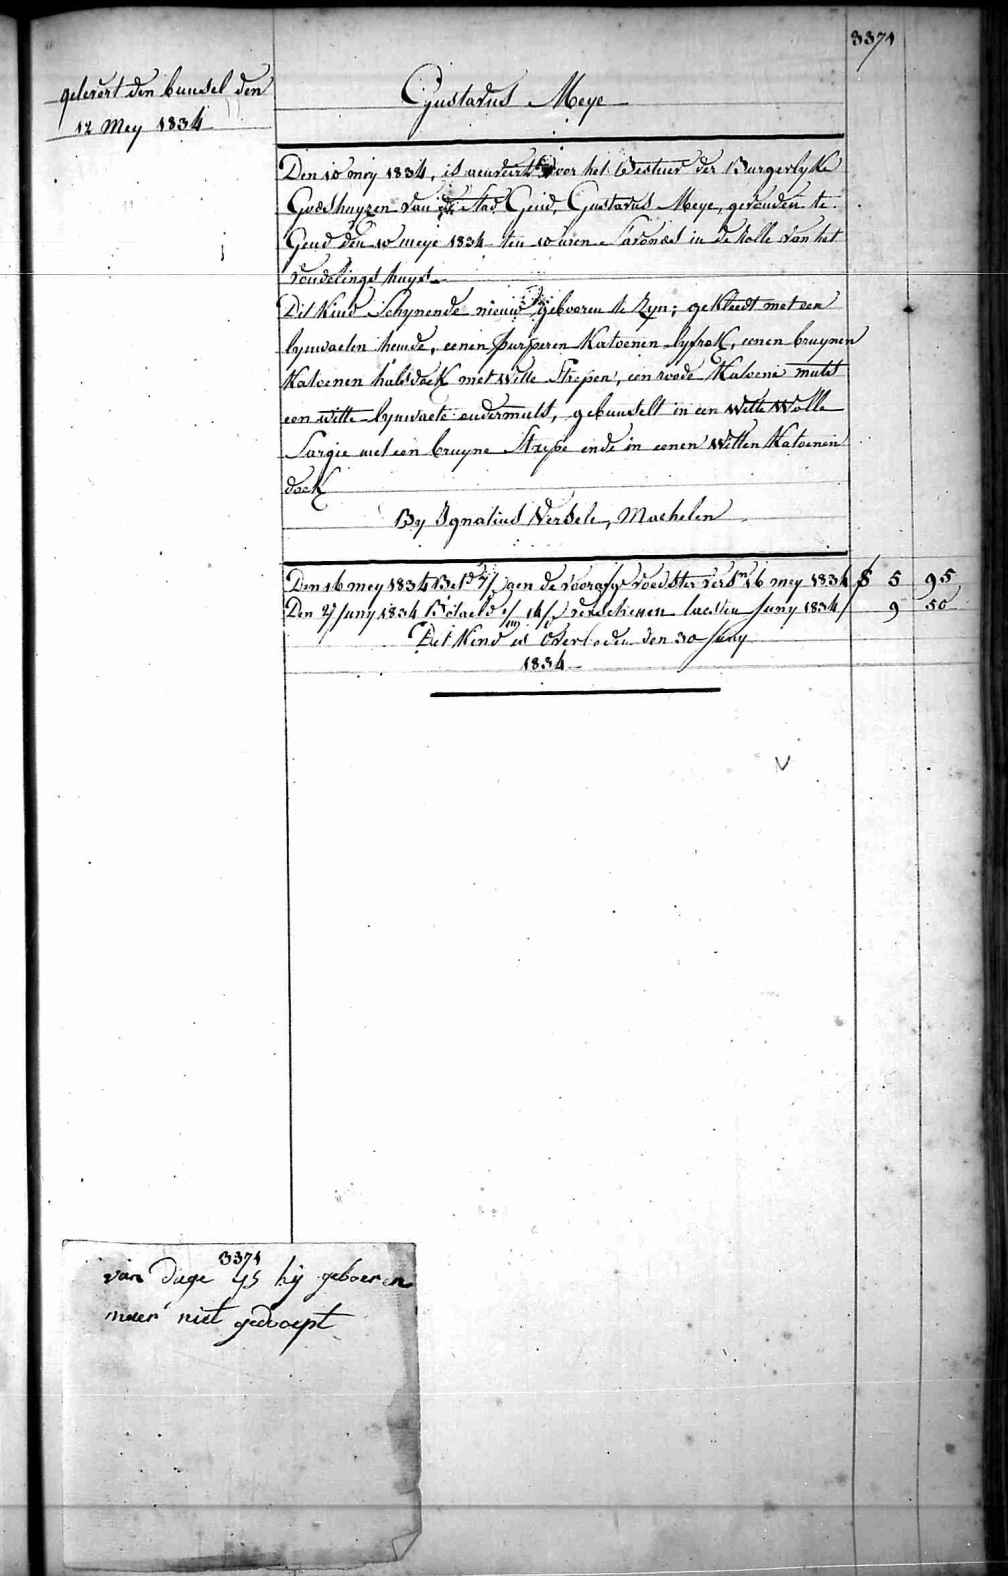 3371
gelevert den bunsel den
12 Mey 1834
Gustavus Meye
Den 10 mey 1834, is aenveert door het Bestuer der Burgerlyke
Godshuyzen van de Stad Gend, Gustavus Meye, gevonden te
Gend den 10 meye 1834 ten 10 uren S'avonds in de Rolle van het
vondelings huys.
Dit Kind Schynende nieuw gebooren te Zyn; gekleedt met een
lynwaeten hemde, eenen purperen Katoenen lyfrok, eenen bruynen
Katoenen halsdoek met witte Strepen, een roode Katoene muts
een witte lynwaete ondermuts, gebunselt in een Witte Wolle
Sargie met een bruyne Strepe ende in eenen Witten Katoenen
doek
By Ignatius Versele, Machelen
Den 16 mey 1834 Betd aen de voorage voedster vers 16 mey 1834 f 5 95
Den 27 Juny 1834 Betaeld 14/ verschenen laesten Juny 1834 / 9 50
Dit Kind is Overleden den 30 Juny
1834
3371
van dage is hij geboeren
maer niet gedoopt